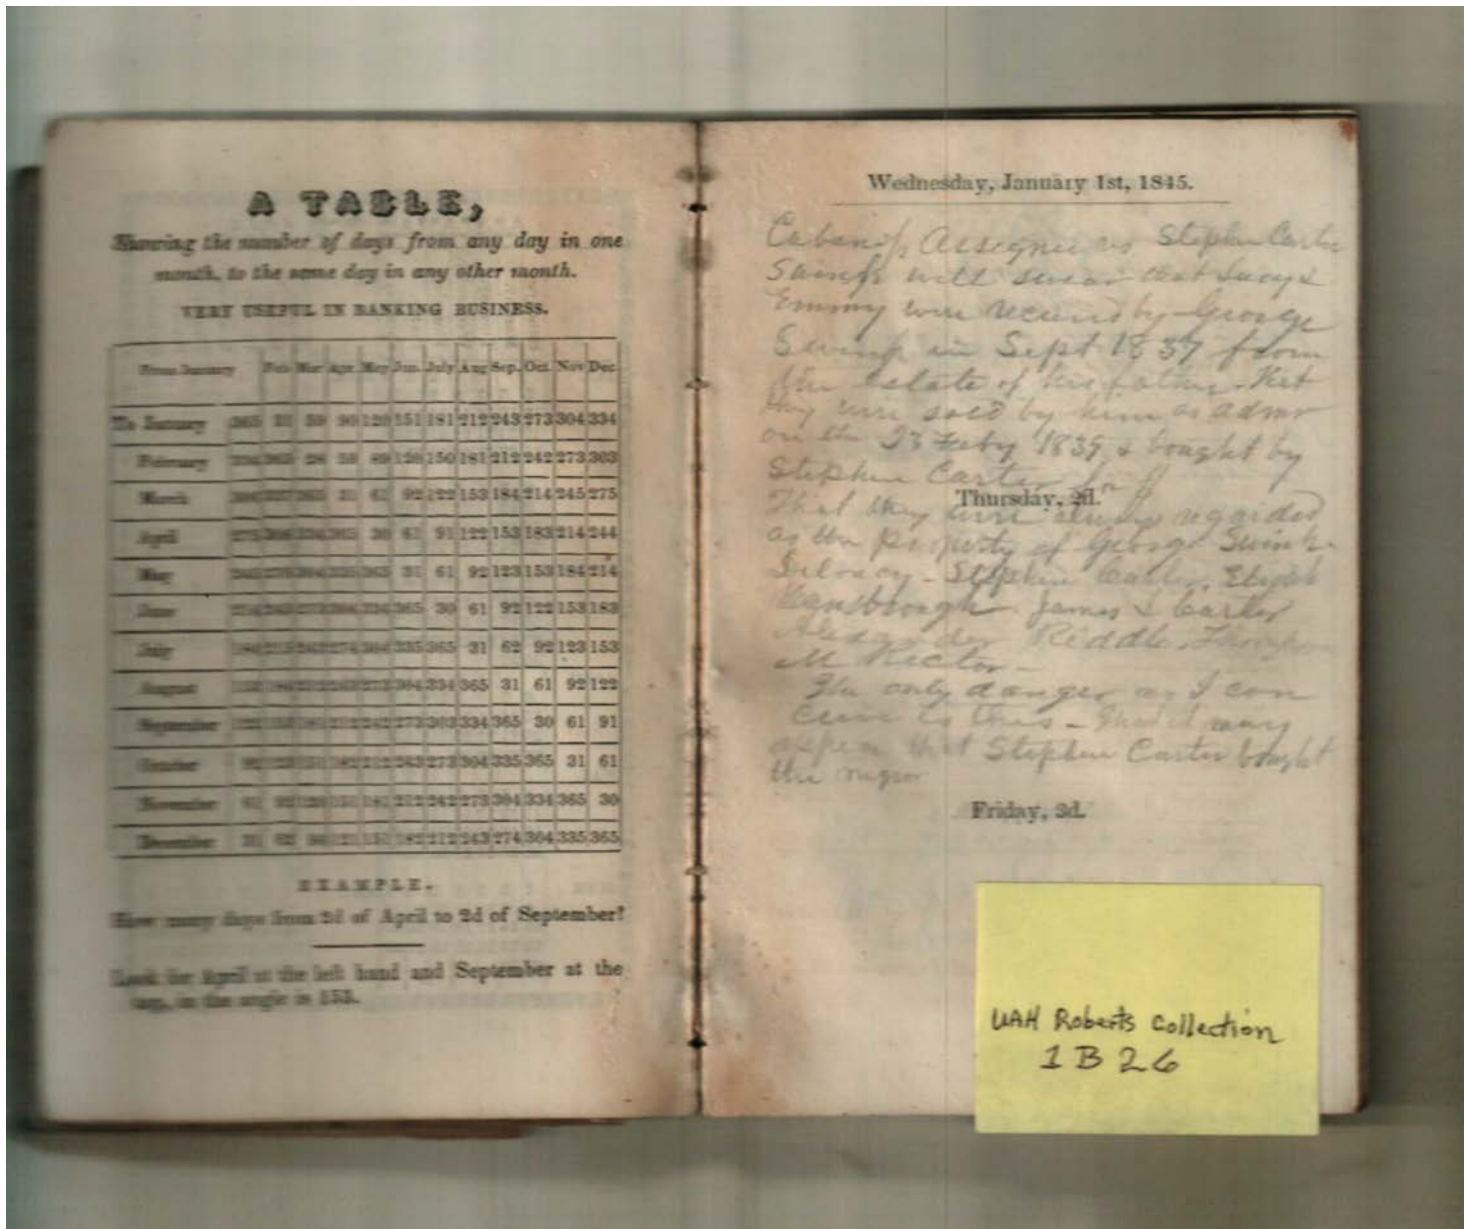 A TABLE,
Showing the number of days from any day in one
month, to the same day in any other month.
VERY USEFUL IN BANKING BUSINESS.
From January Feb Mar Apr. May Jun. July Aug Sep. Oct. Nov Dec.
To January 365 31 59 90 120 151 181 212 243 273 304 334
February 334 365 28 59 89 120 150 181 212 242 273 303
March 365 31 61 92 122 153 184 214 245 275
April 365 30 61 91 122 153 183 214 244
May 365 31 61 92 123 153 184 214
June 365 30 61 92 122 153 183
July 335 365 31 62 92 123 153
August 304 334 365 31 61 92 122
September 273 303 334 365 30 61 91
October 243 273 304 335 365 31 61
November 212 242 273 304 334 365 30
December 182 212 243 274 304 335 365
EXAMPLE.
How many days from 2d of April to 2d of September?
Look for April at the left hand and September at the
top, in the angle is 153.
Wednesday, January 1st, 1845.
Assignee vs Stephen Carter
will swear that Lucy &
Emmy were received by George
in Sept 1837 from
the estate of his father. That
they were sold by him as admr
on the 23 Feby 1839 & bought by
Stephen Carter for $
Thursday, 2d.
That they were always regarded
as the property of George
Stephen Carter,
James & Carter
Alexander Riddle,
M Rector -
The only danger as I con
ceive is this - that it may
appear that Stephen Carter bought
the negroes
Friday, 3d.
UAH Roberts Collection
1 B 26